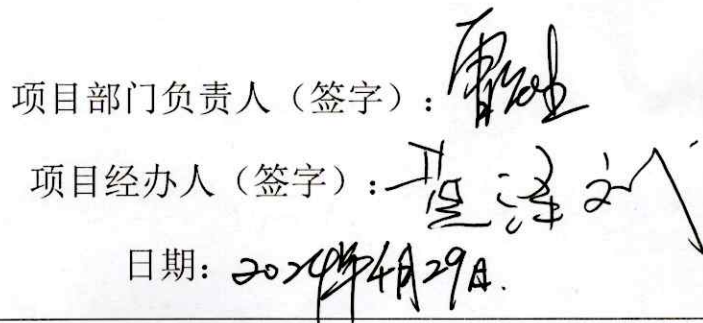 项目部门负责人（签字）：
项目经办人（签字）：
日期：2024年4月29日.